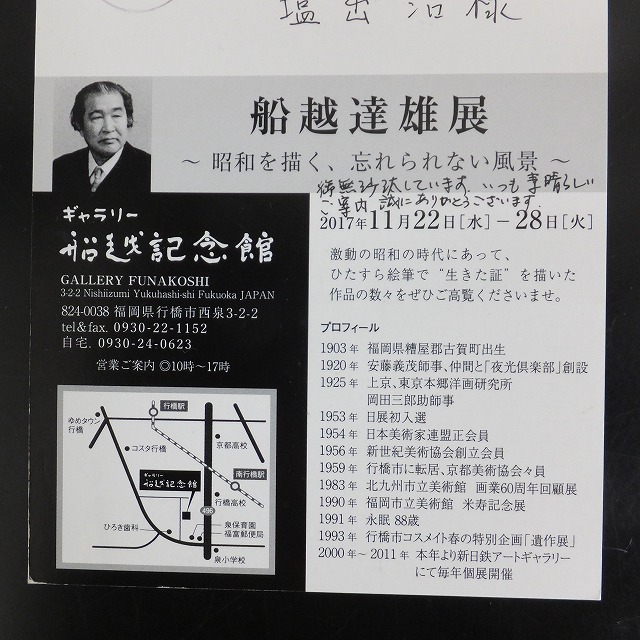 塩出 治様
船越達雄展
～昭和を描く、忘れられない風景～
御無沙汰しています。いつも素晴らしい
ご案内 誠にありがとうございます。
2017年11月22日[水]－28日[火]
激動の昭和の時代にあって、
ひたすら絵筆で“生きた証”を描いた
作品の数々をぜひご高覧くださいませ。
ギャラリー
船越記念館
GALLERY FUNAKOSHI
3-2-2 Nishiizumi Yukuhashi-shi Fukuoka JAPAN
824-0038 福岡県行橋市西泉3-2-2
tel＆fax. 0930-22-1152
自宅. 0930-24-0623
営業ご案内 ◎10時～17時
行橋駅
ゆめタウン
行橋
コスタ行橋
京都高校
南行橋駅
ギャラリー
船越記念館
行橋高校
496
ひろき歯科
泉保育園
福富郵便局
泉小学校
プロフィール
1903年 福岡県糟屋郡古賀町出生
1920年 安藤義茂師事、仲間と「夜光倶楽部」創設
1925年 上京、東京本郷洋画研究所
岡田三郎助師事
1953年 日展初入選
1954年 日本美術家連盟正会員
1956年 新世紀美術協会創立会員
1959年 行橋市に転居、京都美術協会々員
1983年 北九州市立美術館 画業60周年回顧展
1990年 福岡市立美術館 米寿記念展
1991年 永眠 88歳
1993年 行橋市コスメイト春の特別企画「遺作展」
2000年～2011年 本年より新日鉄アートギャラリー
にて毎年個展開催